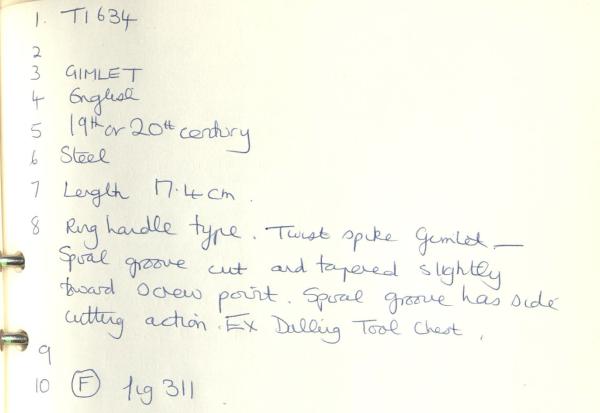 1. T1634
2
3 GIMLET
4 English
5 19th or 20th century
6 Steel
7 Length 17.4 cm.
8 Ring handle type. Twist spike Gimlet —
Spiral groove cut and tapered slightly
toward screw point. Spiral groove has side
cutting action. Ex Tool Chest.
9
10 (F) fig 311